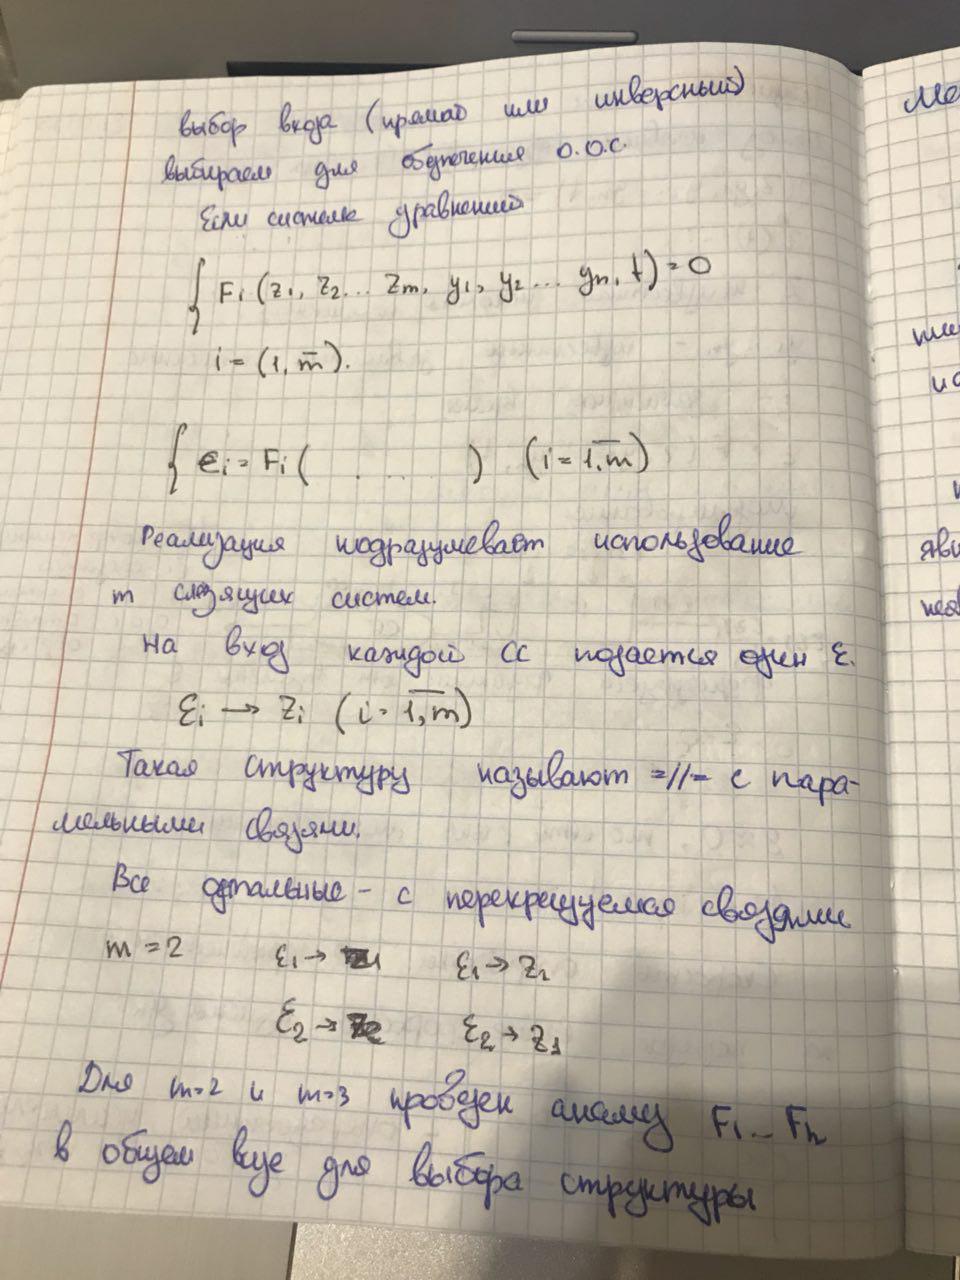 выбор входа (прямой или инверсный)
выбираем для обеспечения О.О.С.
Если система уравнений
{ Fi (z1, z2... zm, y1, y2... yn, t) = 0
i = (1, m̅).
{ εi = Fi ( . . . . . ) (i = 1,m̅)
Реализация подразумевает использование
m следящих систем.
На вход каждой СС подается один ε.
εi → zi (i = 1,m̅)
Такая структуру называют =//= с пара-
лельными связями.
Все остальные – с перекрещуемся связями
m = 2 ε1 → z1 ε1 → z2
ε2 → z2 ε2 → z1
Для m=2 и m=3 проведен анализ F1 – Fn
в общем виде для выбора структуры
Ме
явл